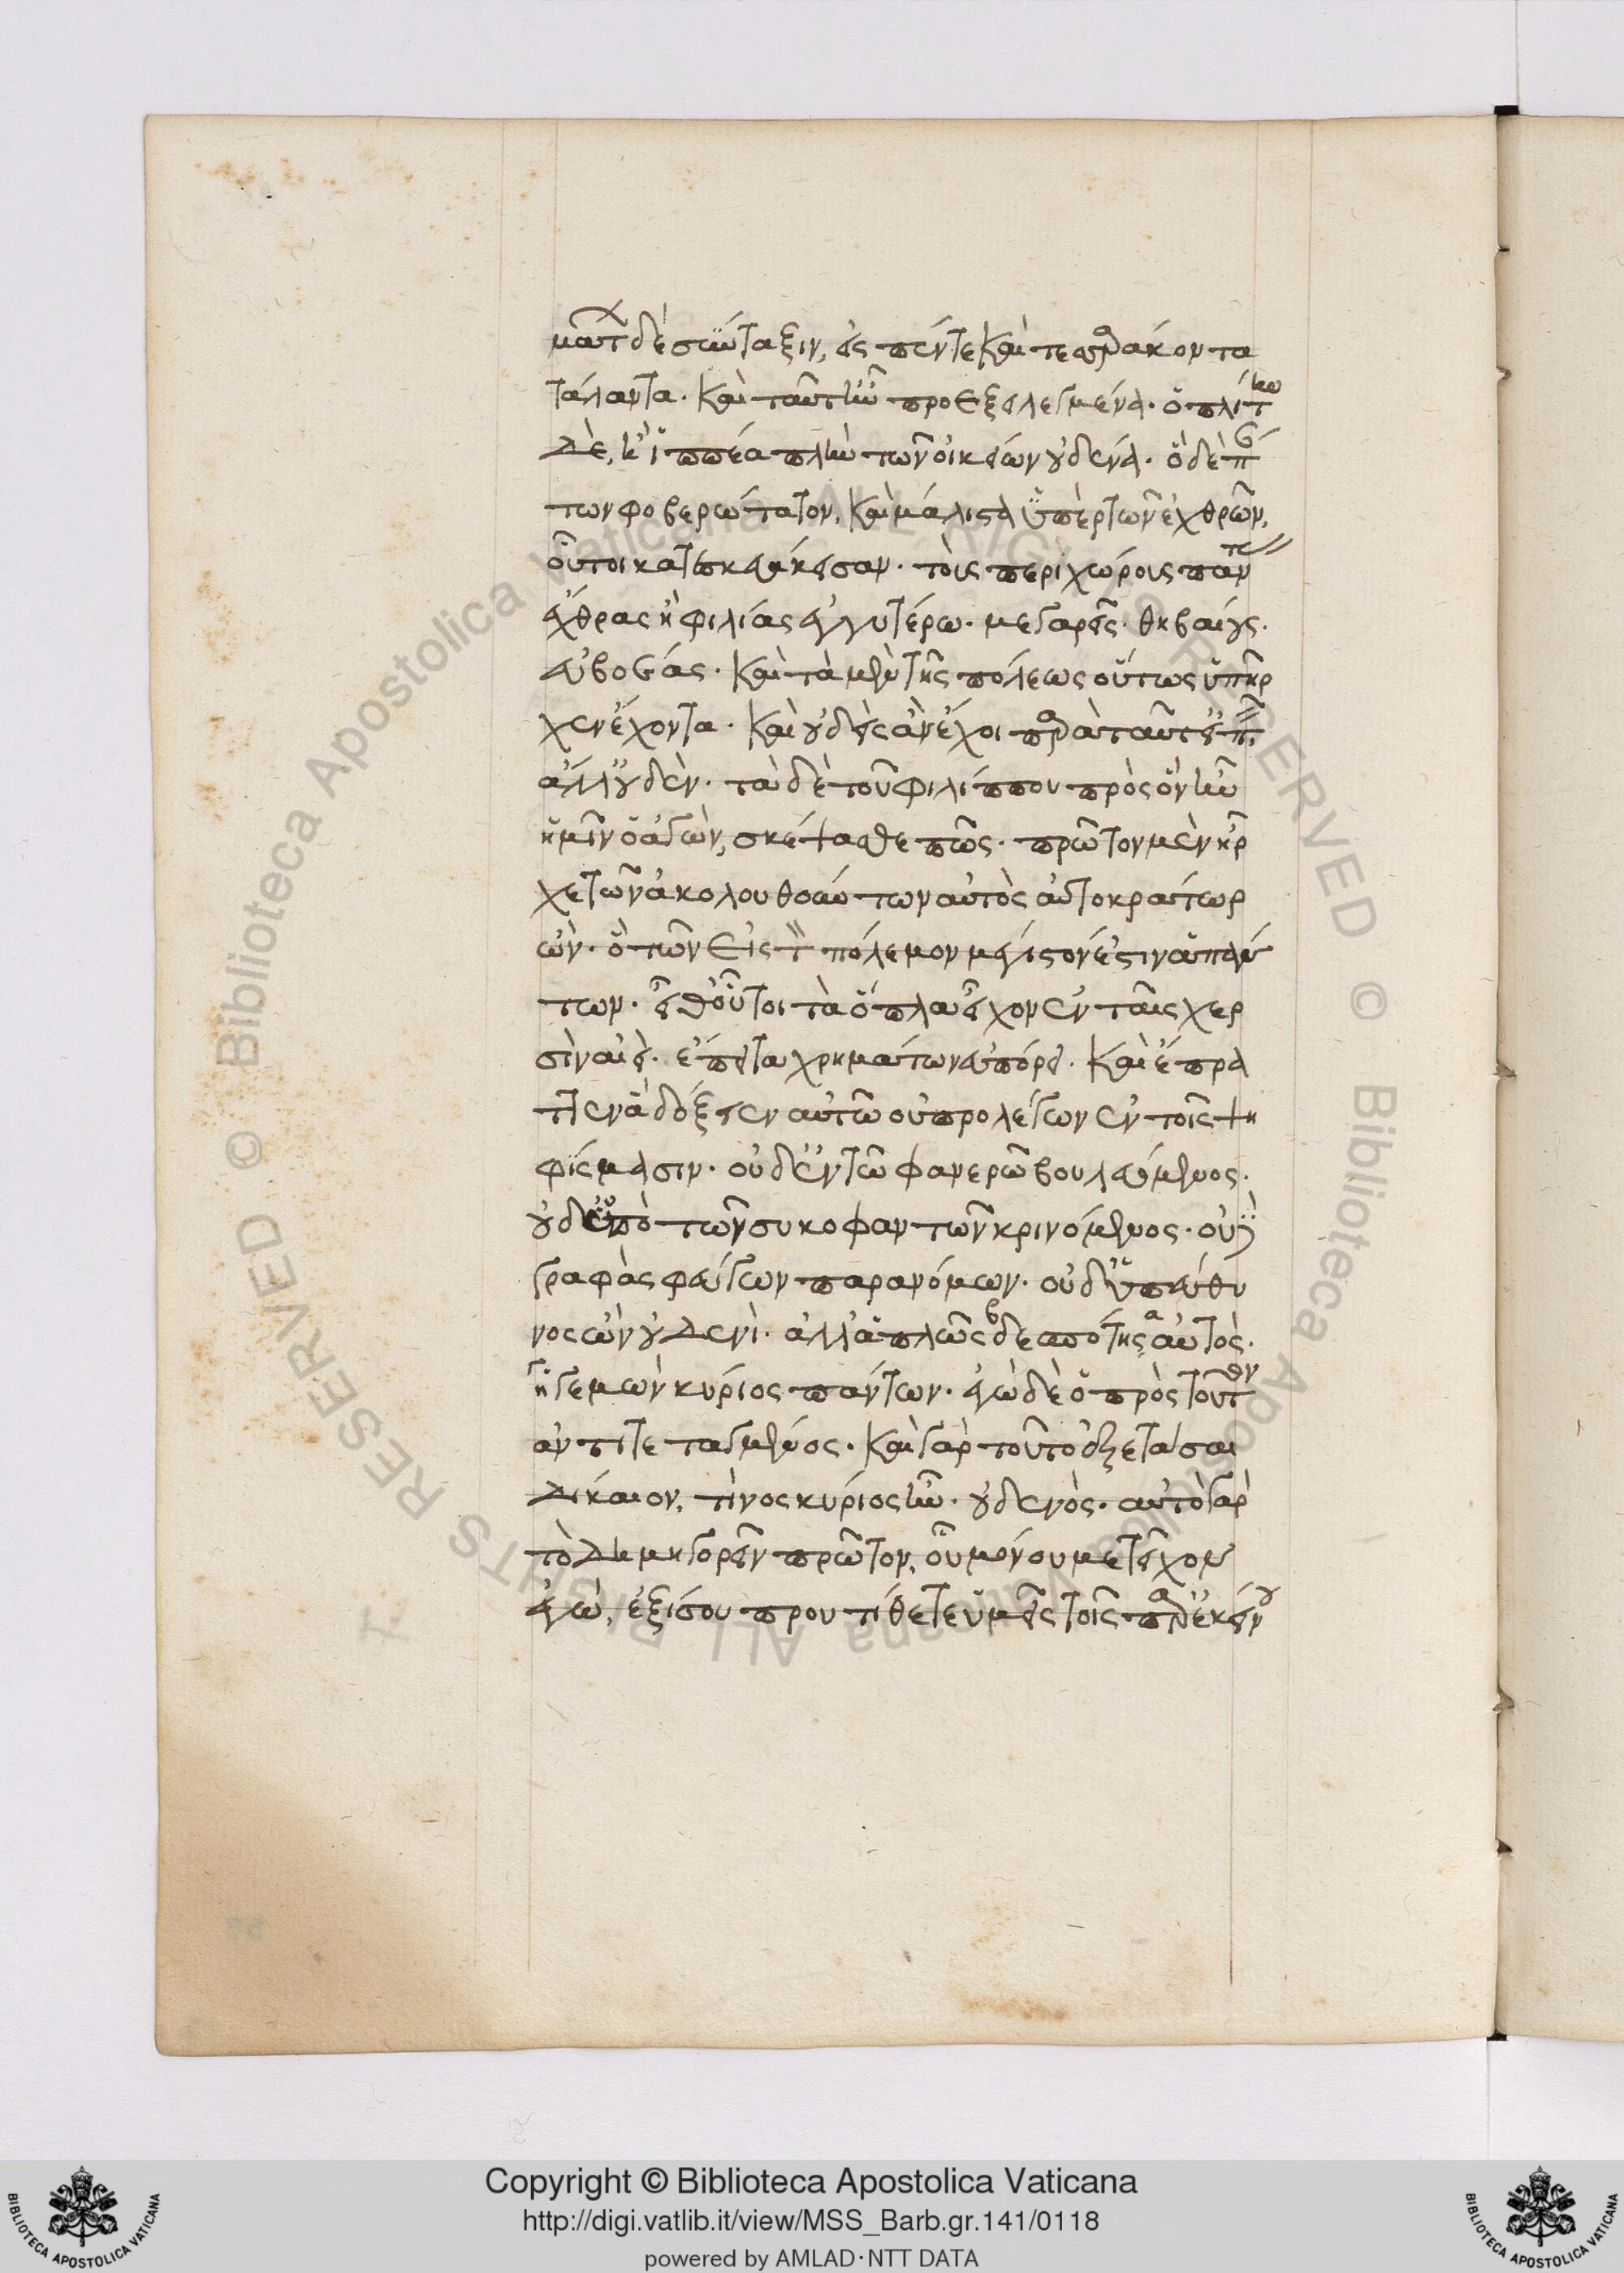 μάτων δὲ σύνταξιν, εἰς πέντε καὶ τεσσαράκοντα
τάλαντα. καὶ ταῦτ' ἦν προεξειλεγμένα. ὁπλίτην
δὲ, ἢ ἱππέα πλὴν τῶν οἰκείων οὐδένα. ὃ δὲ πάν
των φοβερώτατον, καὶ μάλισθ' ὑπὲρ τῶν ἐχθρῶν,
οὗτοι κατεσκευάκεισαν. τοὺς περιχώρους πάντας
ἔχθρας ἢ φιλίας ἐγγυτέρω. μεγαρεῖς. θηβαίους.
εὐβοέας. καὶ τὰ μὲν τῆς πόλεως οὕτως ὑπῆρ
χεν ἔχοντα. καὶ οὐδεὶς ἂν ἔχοι παρὰ ταῦτ' εἰπεῖν
ἄλλ' οὐδέν. τὰ δὲ τοῦ φιλίππου πρὸς ὃν ἦν
ἡμῖν ὁ ἀγών, σκέψασθε πῶς. πρῶτον μὲν ἦρ
χε τῶν ἀκολουθούντων αὐτὸς αὐτοκράτωρ
ὤν. ὃ τῶν εἰς τὸν πόλεμον μέγιστόν ἐστιν ἁπάν
των. εἶθ' οὗτοι τὰ ὅπλα εἶχον ἐν ταῖς χερ
σὶν ἀεί. ἔπειτα χρημάτων εὐπόρει. καὶ ἔπρα
ττεν ἃ δόξειεν αὐτῷ οὐ προλέγων ἐν τοῖς ψη
φίσμασιν. οὐδ' ἐν τῷ φανερῷ βουλευόμενος.
οὐδ' ὑπὸ τῶν συκοφαντῶν κρινόμενος. οὐδὲ
γραφὰς φεύγων παρανόμων. οὐδ' ὑπεύθυ
νος ὢν οὐδενί. ἀλλ' ἁπλῶς β δεσπότης, α αὐτὸς.
ἡγεμὼν κύριος πάντων. ἐγὼ δὲ ὁ πρὸς τοῦτον
ἀντιτεταγμένος. καὶ γὰρ τοῦτο ἐξετάσαι
δίκαιον, τίνος κύριος ἦν. οὐδενός. αὐτὸ γὰρ
τὸ δημηγορεῖν πρῶτον, οὗ μόνου μετεῖχον
ἐγὼ, ἐξίσου προυτίθετε ὑμεῖς τοῖς παρ' ἐκείνου